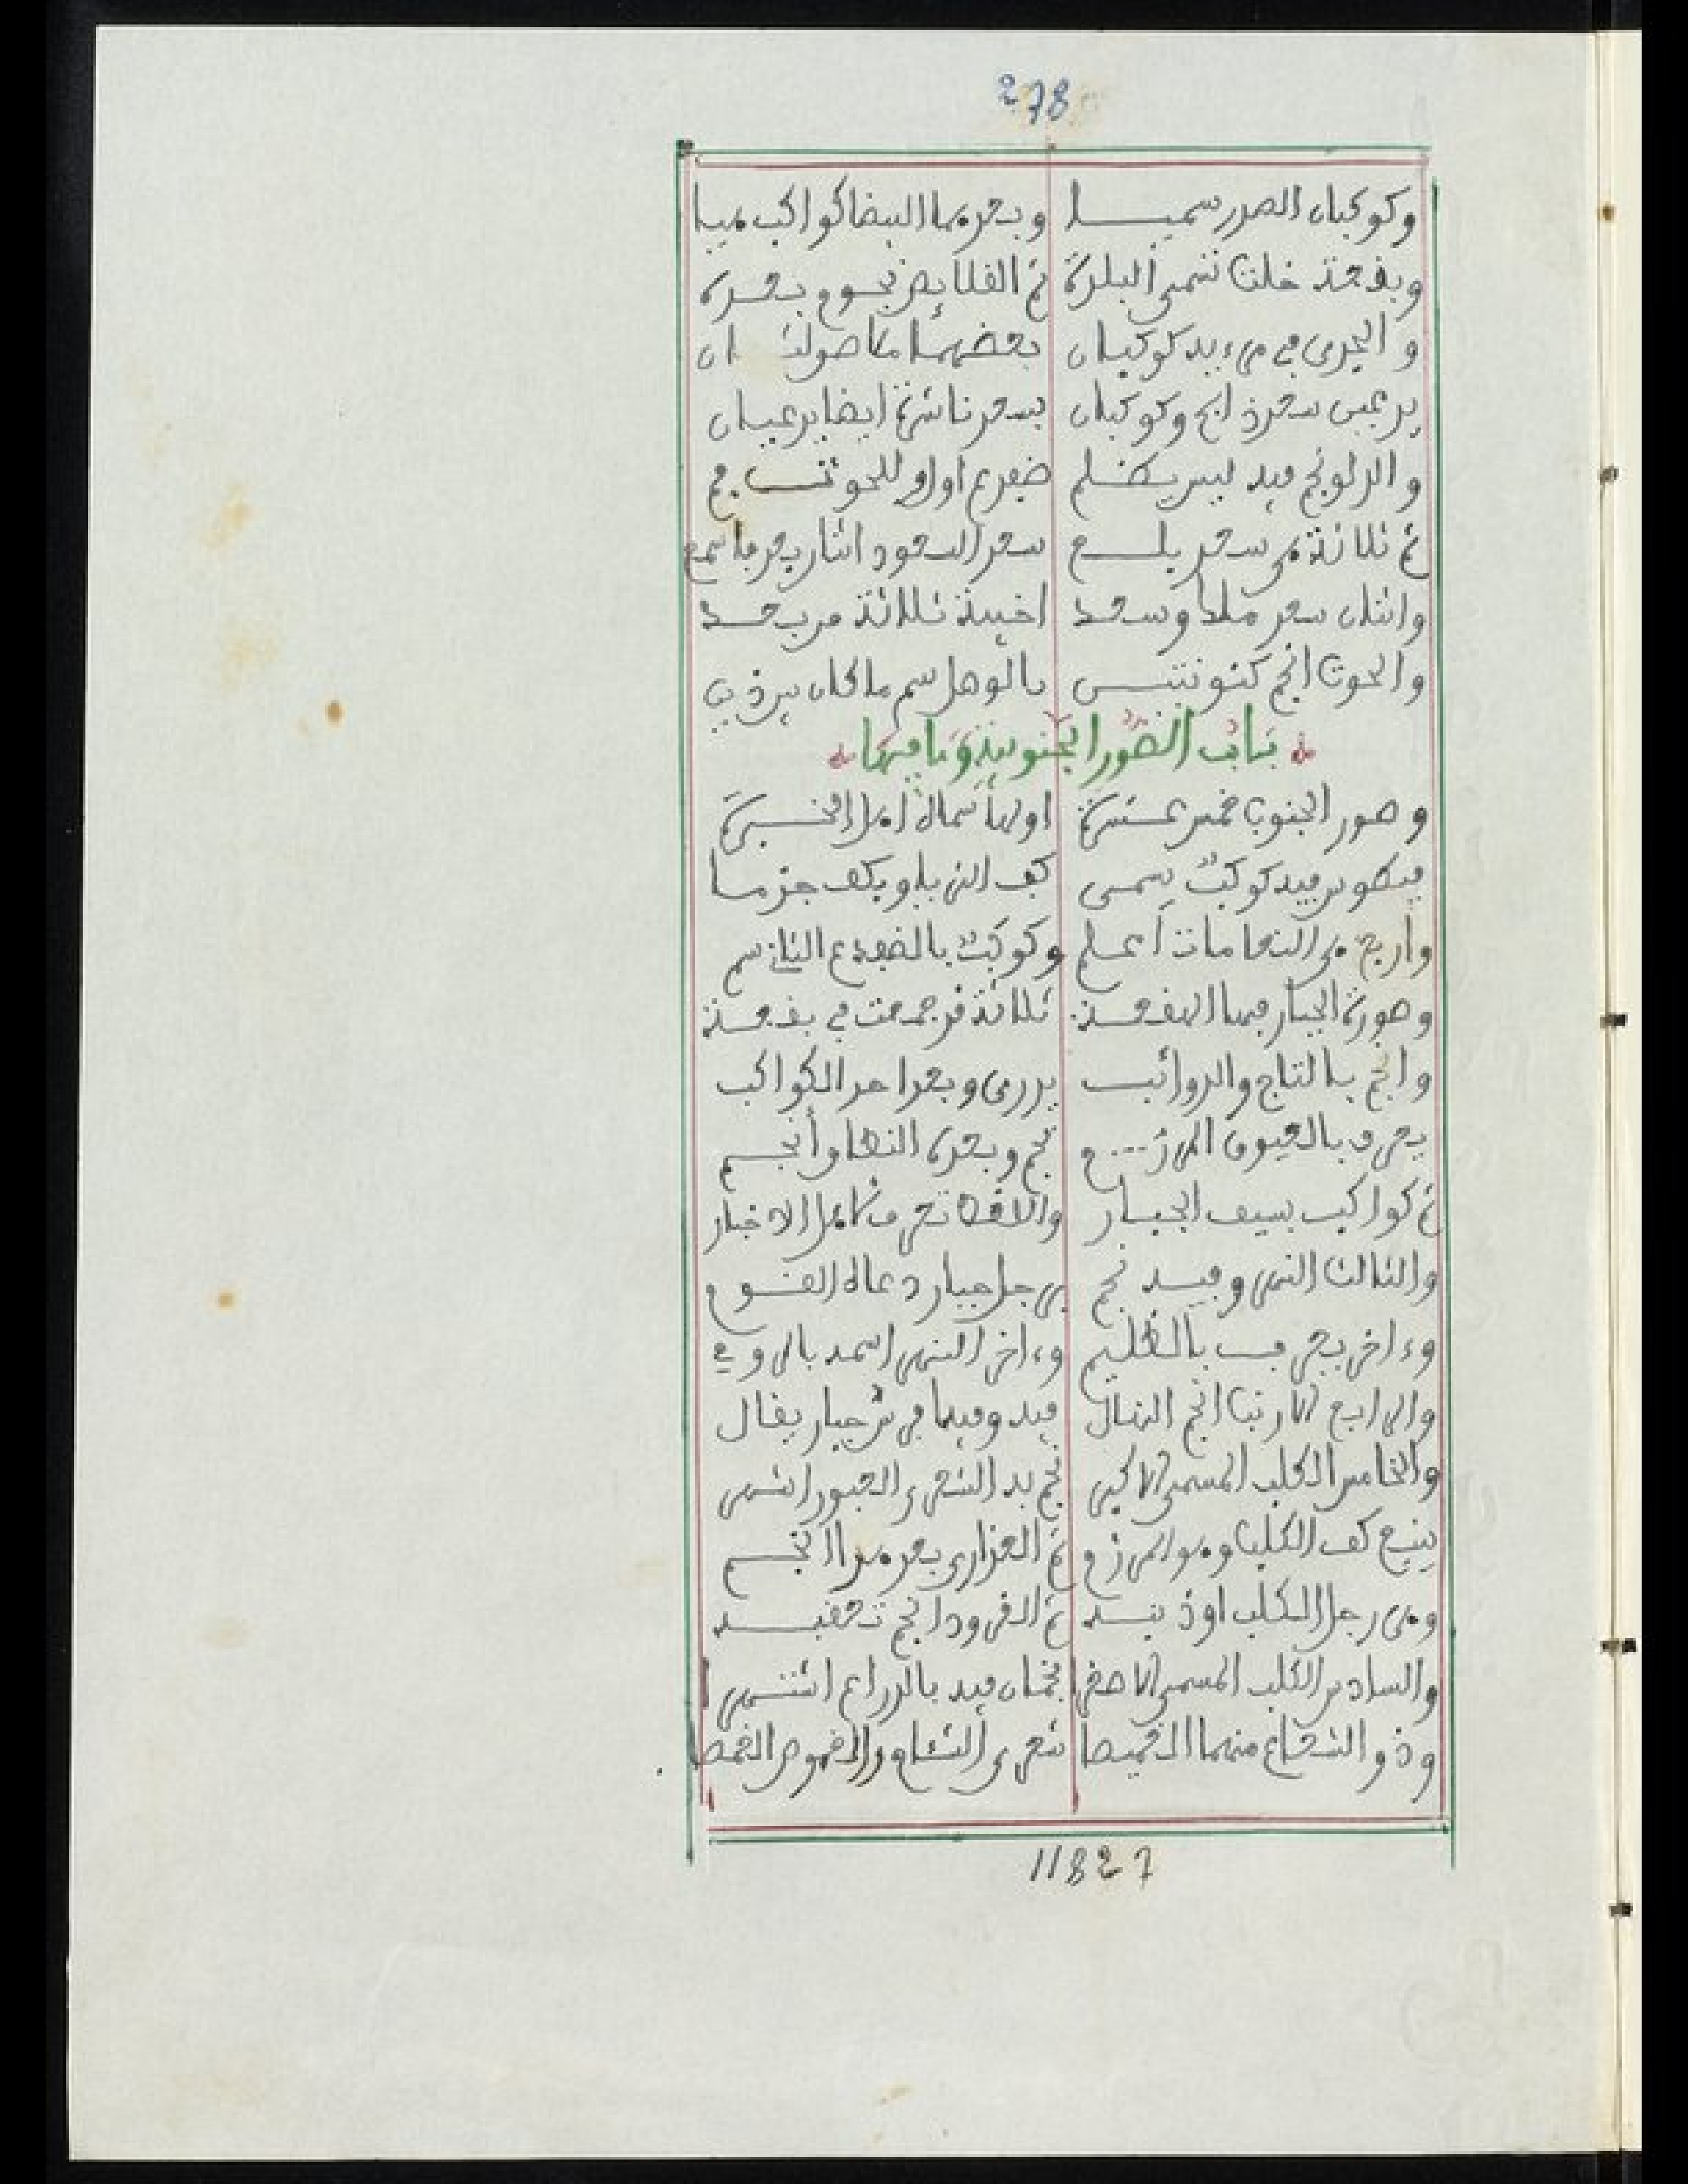 278
وكوكبان الصدر سميا وبعدها البيضا كواكب فيها
وبقعة خلت تسمى البلدة ثم القلايص نجوم بعده
والجدي في قرنيه كوكبان بعضهما ملاصق لثان
يدعى سعد ذابح وكوكبان بسعد ناشرة ايضا يدعيان
والدلو نجم فيه ليس يظلم ضفدع اول للحوت فم
ثم ثلاثة من سعد بلع سعد السعود اثنان بعد فاسمع
واثنان سعد ملك وسعد اخبية ثلاثة من بعد
والحوت انجم كثوب
باب الصور الجنوبية وما فيها
وصور الجنوب خمس عشرة اولها سماك اهل الخبرة
قيطوس فيه كوكب يسمى كف الثريا وبكف جزما
واربع من النعامات اعلم وكوكب بالضفدع الثاني سم
وصورة الجبار فيها الهقعة ثلاثة قد جمعت في بقعة
وانجم بالتاج والدوائب يدرى وبعد احد الكواكب
يعرف بالعيوق المرزم نجم وبعده النطاق أنجم
ثم كواكب بسيف الجبار واللاقط تعرف اهل الاخبار
والثالث النهر وفيه نجم رجل جبار دعاه القوم
وءاخر يعرف بالظليم وءاخر النهر اسمه بالروي
والرابع الارنب انجم النهال فيه وفيها عرش جبار يقال
والخامس الكلب المسمى الاكبر نجم به الشعرى العبور اشتهر
يتبع كف الكلب وهو المرزم ثم العذارى بعد هذا انجم
ومن رجل الكلب او ذنبه ثم القرود انجم تعقبه
والسادس الكلب المسمى الاصغرا نجمان فيه بالذراع اشتهرا
وذو الشعاع منهما الغميصا شعرى الشام والغموص الغمصا
11827